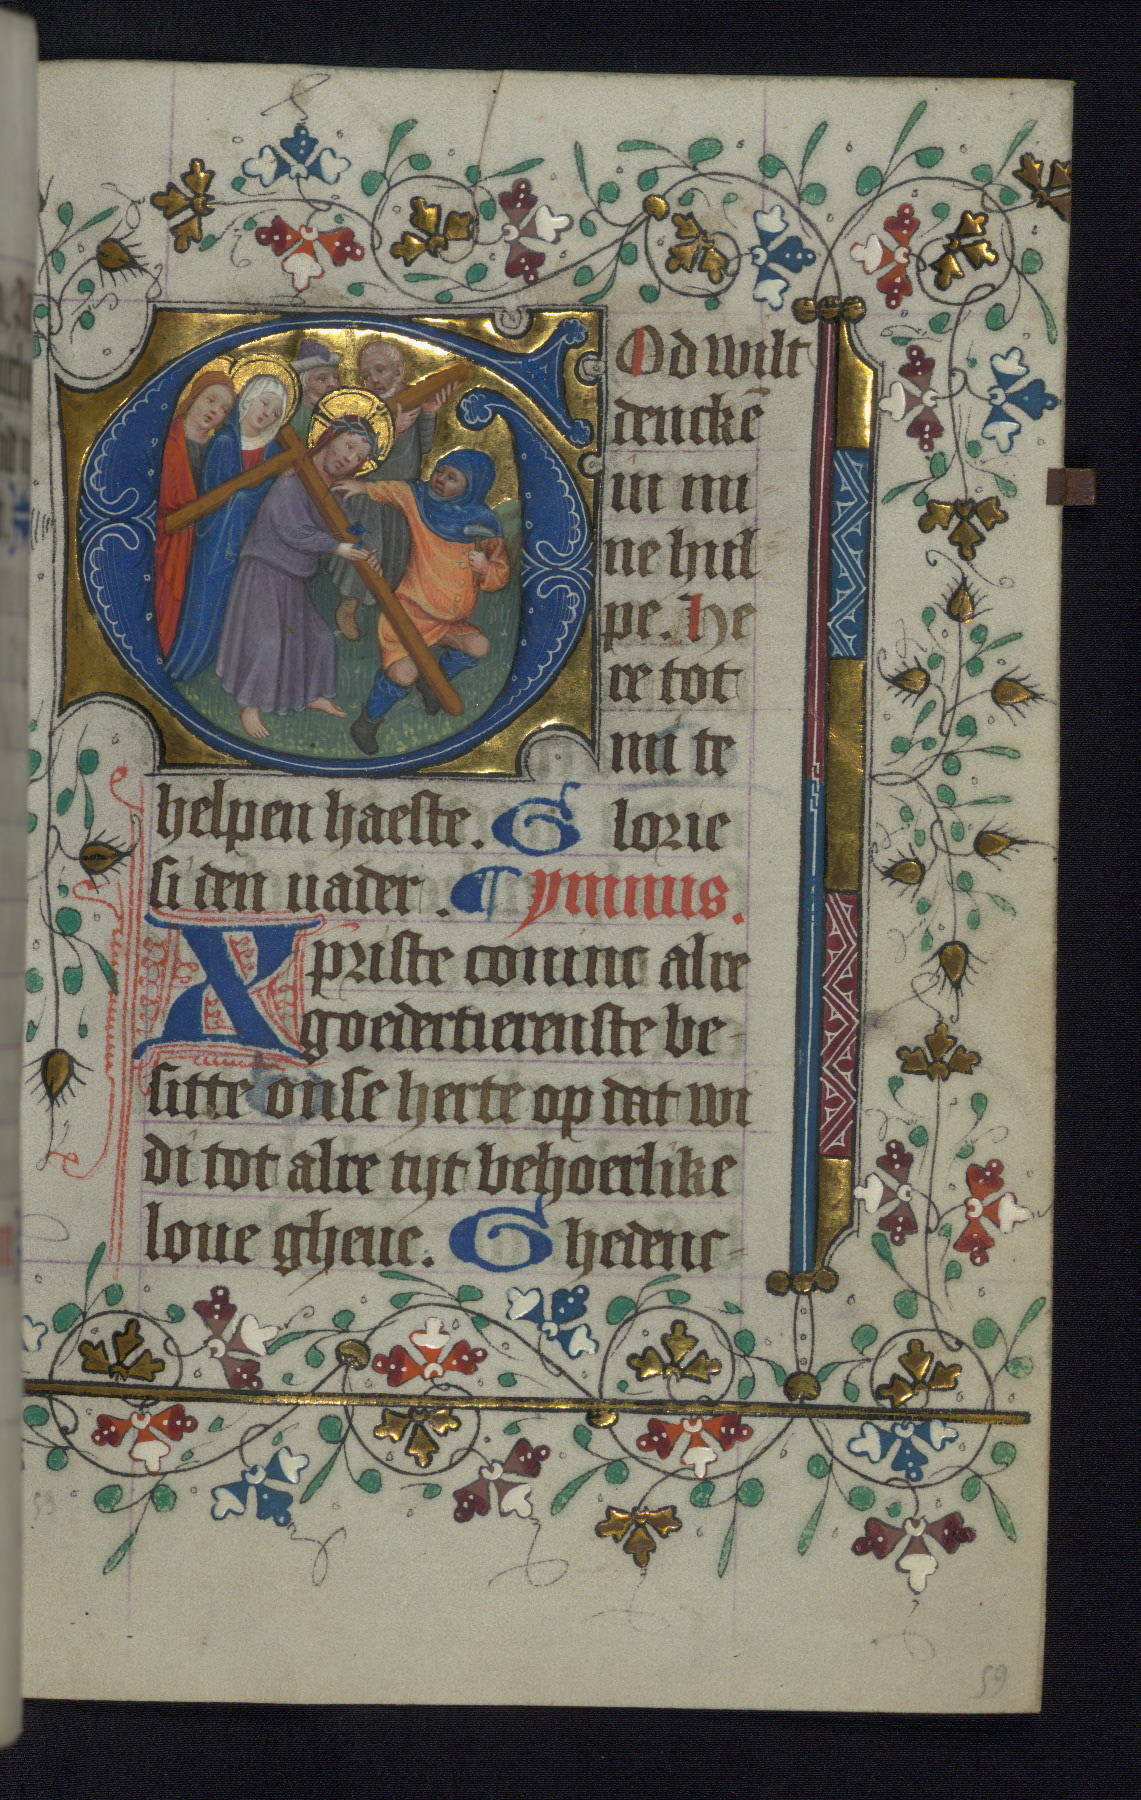 God wilt
dencke̅
in mi
ne hul
pe. He
re tot
mi te
helpen haeste. G lorie
si den uader. ¶ ymnus.
Xpriste coninc alre
goedertierenste be-
sitte onse herte op dat wi
di tot alre tijt behoerlike
loue gheue. G hedenc-
59